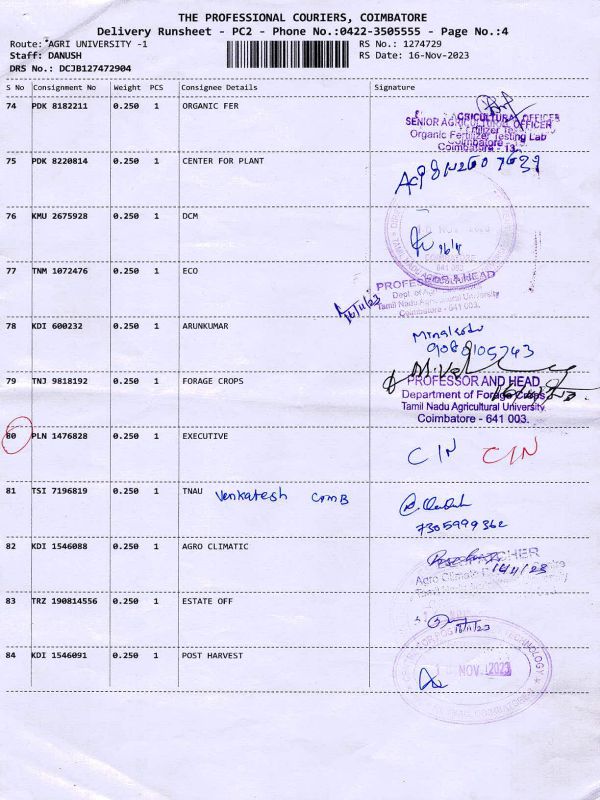 THE PROFESSIONAL COURIERS, COIMBATORE
Delivery Runsheet - PC2 - Phone No.:0422-3505555 - Page No.:4
Route: AGRI UNIVERSITY -1 RS No.: 1274729
Staff: DANUSH RS Date: 16-Nov-2023
DRS No.: DCJB127472904
S No Consignment No Weight PCS Consignee Details Signature
74 PDK 8182211 0.250 1 ORGANIC FER
AGRICULTURAL OFFICER
SENIOR AGRICULTURAL OFFICER
Organic Fertilizer Testing Lab
Coimbatore - 13.
75 PDK 8220814 0.250 1 CENTER FOR PLANT
76 KMU 2675928 0.250 1 DCM
16/11
641 003
77 TNM 1072476 0.250 1 ECO
PROFESSOR & HEAD
Tamil Nadu Agricultural University
Coimbatore - 641 003.
16/11/23
78 KDI 600232 0.250 1 ARUNKUMAR
9080105743
79 TNJ 9818192 0.250 1 FORAGE CROPS
PROFESSOR AND HEAD
Department of Forage Crops
Tamil Nadu Agricultural University.
Coimbatore - 641 003.
80 PLN 1476828 0.250 1 EXECUTIVE C/N C/N
81 TSI 7196819 0.250 1 TNAU Venkatesh CPMB
7305999362
82 KDI 1546088 0.250 1 AGRO CLIMATIC
Agro Climate
83 TRZ 190814556 0.250 1 ESTATE OFF
16/11/23
84 KDI 1546091 0.250 1 POST HARVEST
NOV 2023